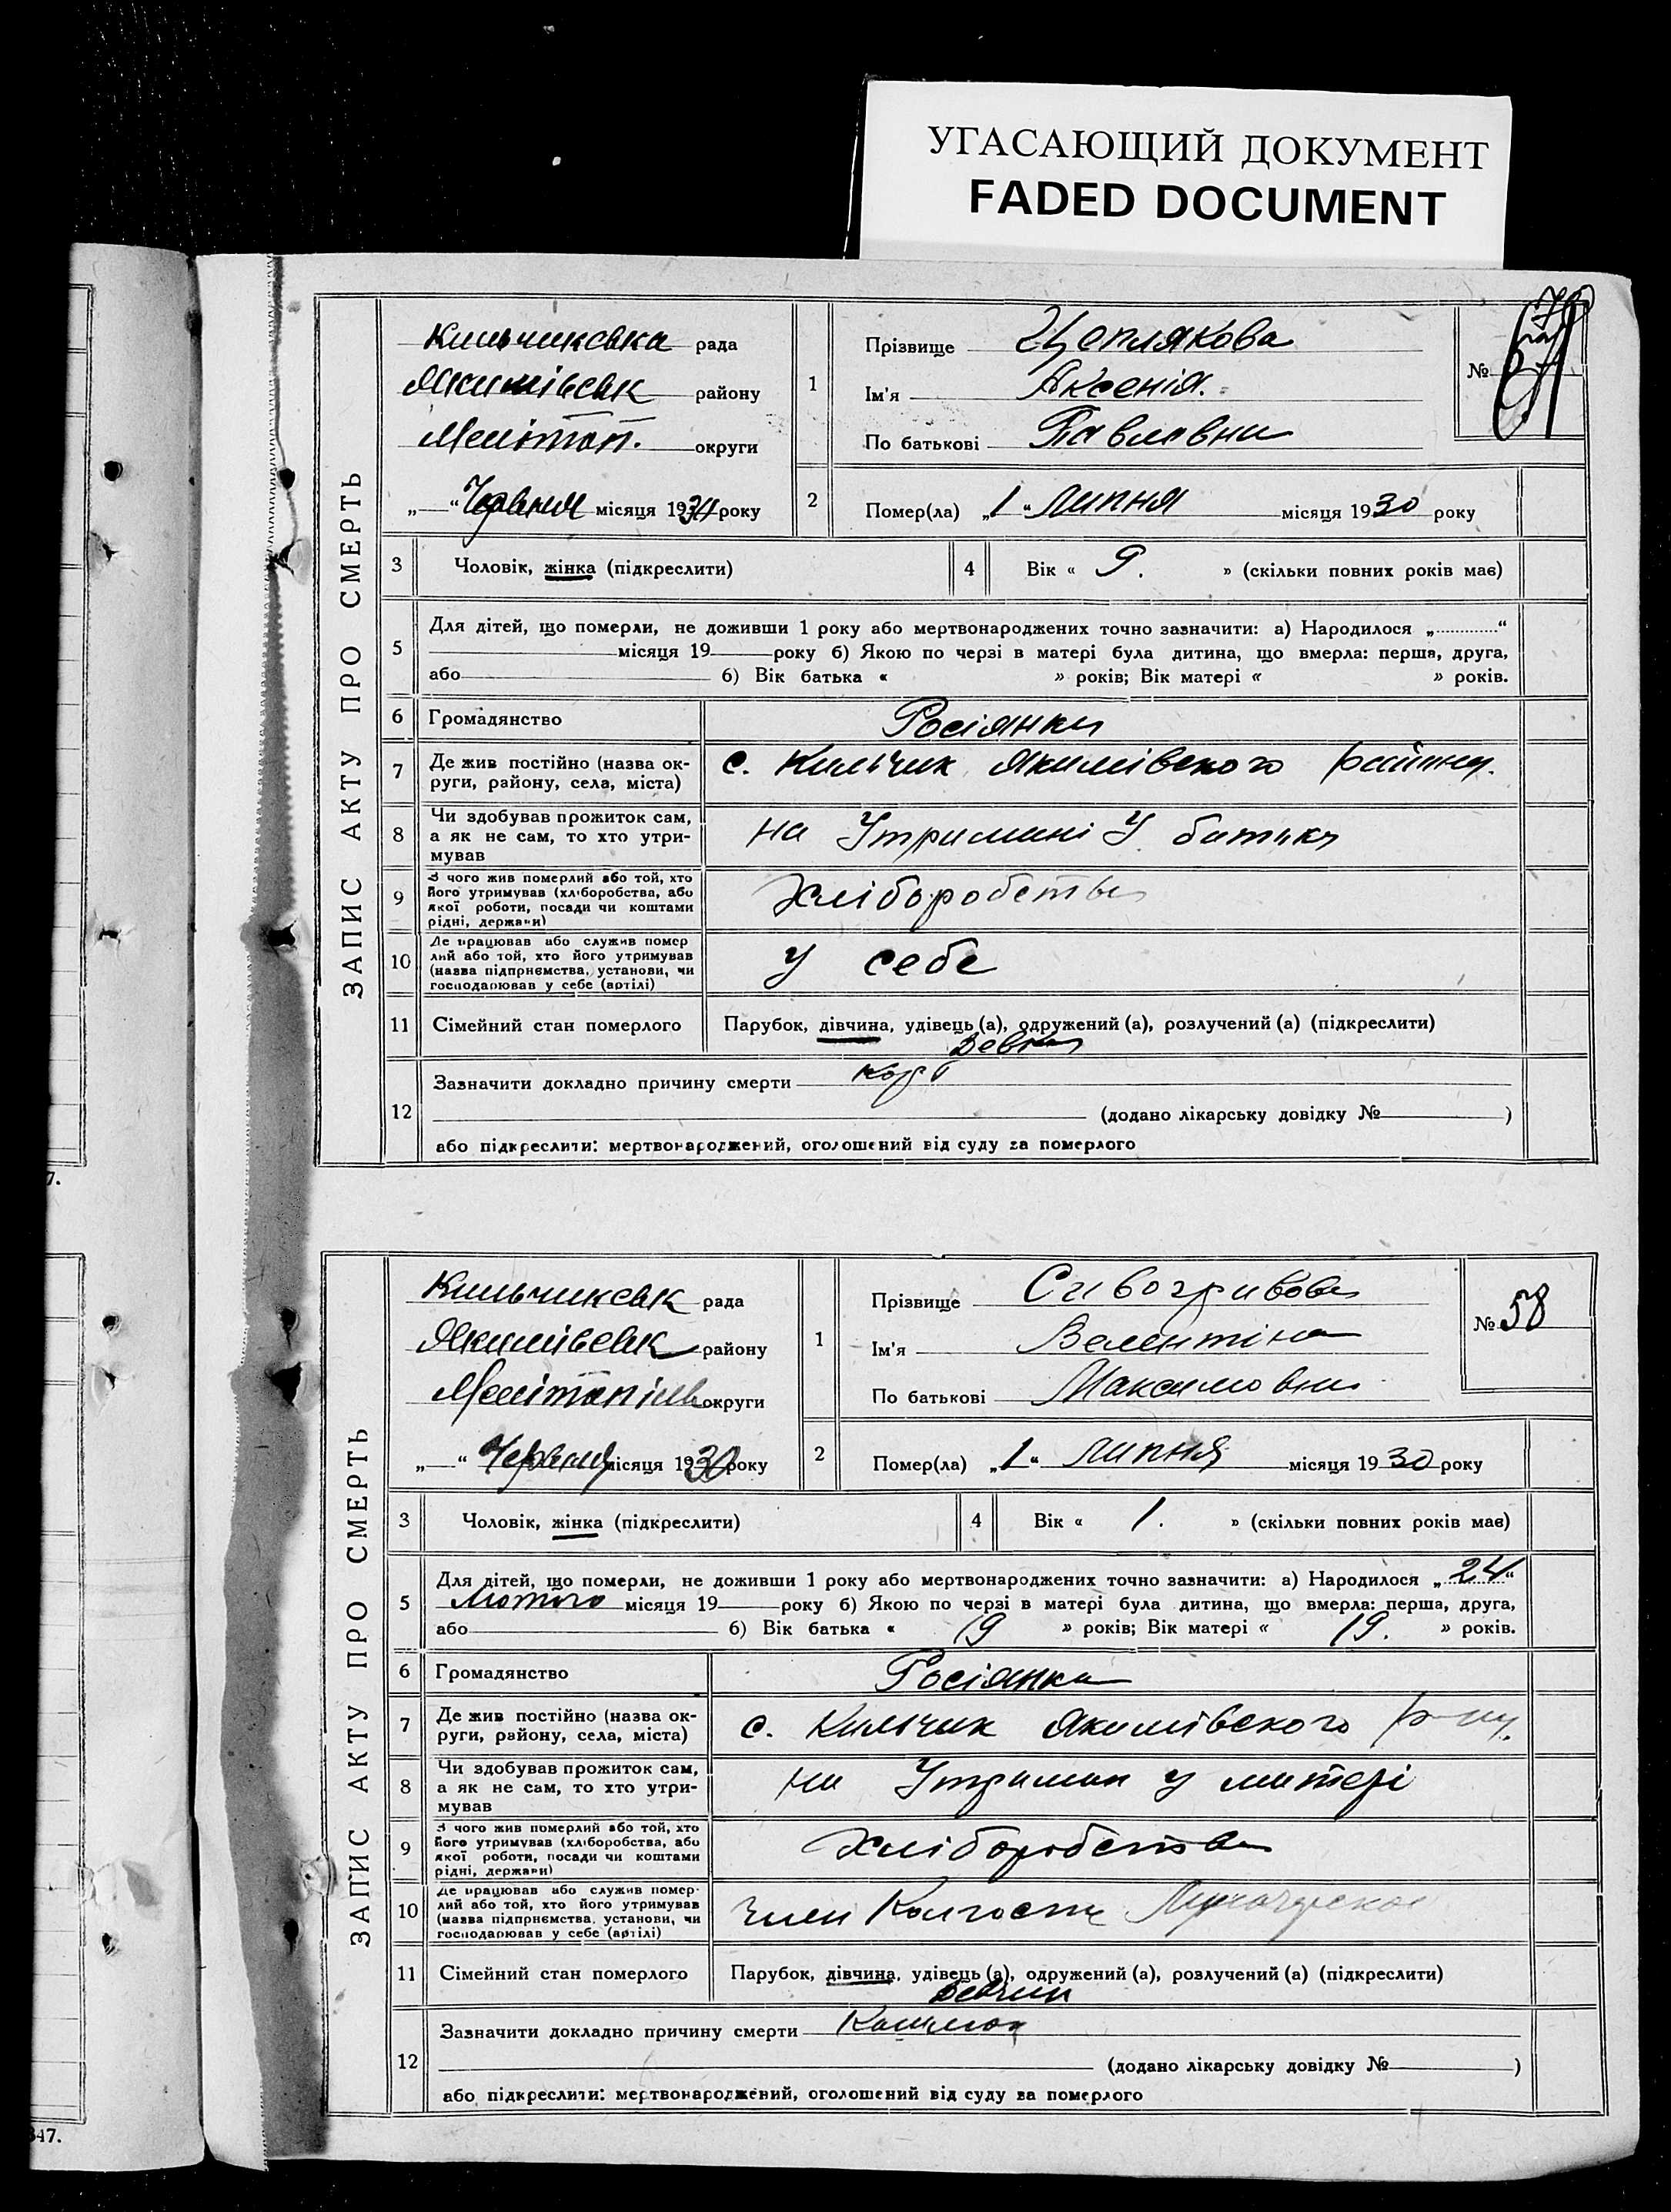 УГАСАЮЩИЙ ДОКУМЕНТ
FADED DOCUMENT
ЗАПИС АКТУ ПРО СМЕРТЬ
Кильчикська рада
Якимівськ району
Мелітоп. округи
„ “ Червня місяця 19 року
1
Прізвище Цоплякова
Ім'я Аксенія.
По батькові Павлавни
№
2
Помер(ла) „1“ Липня місяця 1930 року
3
Чоловік, жінка (підкреслити)
4
Вік « 9. » (скільки повних років має)
5
Для дітей, що померли, не доживши 1 року або мертвонароджених точно зазначити: а) Народилося „ “
місяця 19 року б) Якою по черзі в матері була дитина, що вмерла: перша, друга,
або б) Вік батька « » років; Вік матері « » років.
6
Громадянство
Росіянки
7
Де жив постійно (назва ок-
руги, району, села, міста)
с. Кильчик Якимівского району.
8
Чи здобував прожиток сам,
а як не сам, то хто утри-
мував
на Утримані У батька
9
З чого жив померлий або той, хто
його утримував (хліборобства, або
якої роботи, посади чи коштами
рідні, держави)
Хліборобства
10
Де працював або служив помер
лий або той, хто його утримував
(назва підприємства, установи, чи
господарював у себе (артілі)
У себе
11
Сімейний стан померлого
Парубок, дівчина, удівець (а), одружений (а), розлучений (а) (підкреслити)
Девка
12
Зазначити докладно причину смерти
(додано лікарську довідку № )
або підкреслити: мертвонароджений, оголошений від суду за померлого
7.
ЗАПИС АКТУ ПРО СМЕРТЬ
Кильчикськ рада
Якимівськ району
округи
„ “ Червня місяця 1930 року
1
Прізвище Сивогривова
Ім'я Валентіна
По батькові Максимовни
№ 58
2
Помер(ла) „1“ Липня місяця 1930 року
3
Чоловік, жінка (підкреслити)
4
Вік « 1. » (скільки повних років має)
5
Для дітей, що померли, не доживши 1 року або мертвонароджених точно зазначити: а) Народилося „24“
Лютого місяця 19 року б) Якою по черзі в матері була дитина, що вмерла: перша, друга,
або б) Вік батька « 19 » років; Вік матері « 19. » років.
6
Громадянство
Росіянка
7
Де жив постійно (назва ок-
руги, району, села, міста)
с. Кильчик Якимівского р-ну.
8
Чи здобував прожиток сам,
а як не сам, то хто утри-
мував
на Утриман у матері
9
З чого жив померлий або той, хто
його утримував (хліборобства, або
якої роботи, посади чи коштами
рідні, держави)
Хліборобства
10
Де працював або служив помер-
лий або той, хто його утримував
(назва підприємства, установи, чи
господарював у себе (артілі)
член
11
Сімейний стан померлого
Парубок, дівчина, удівець (а), одружений (а), розлучений (а) (підкреслити)
12
Зазначити докладно причину смерти
(додано лікарську довідку № )
або підкреслити: мертвонароджений, оголошений від суду за померлого
347.